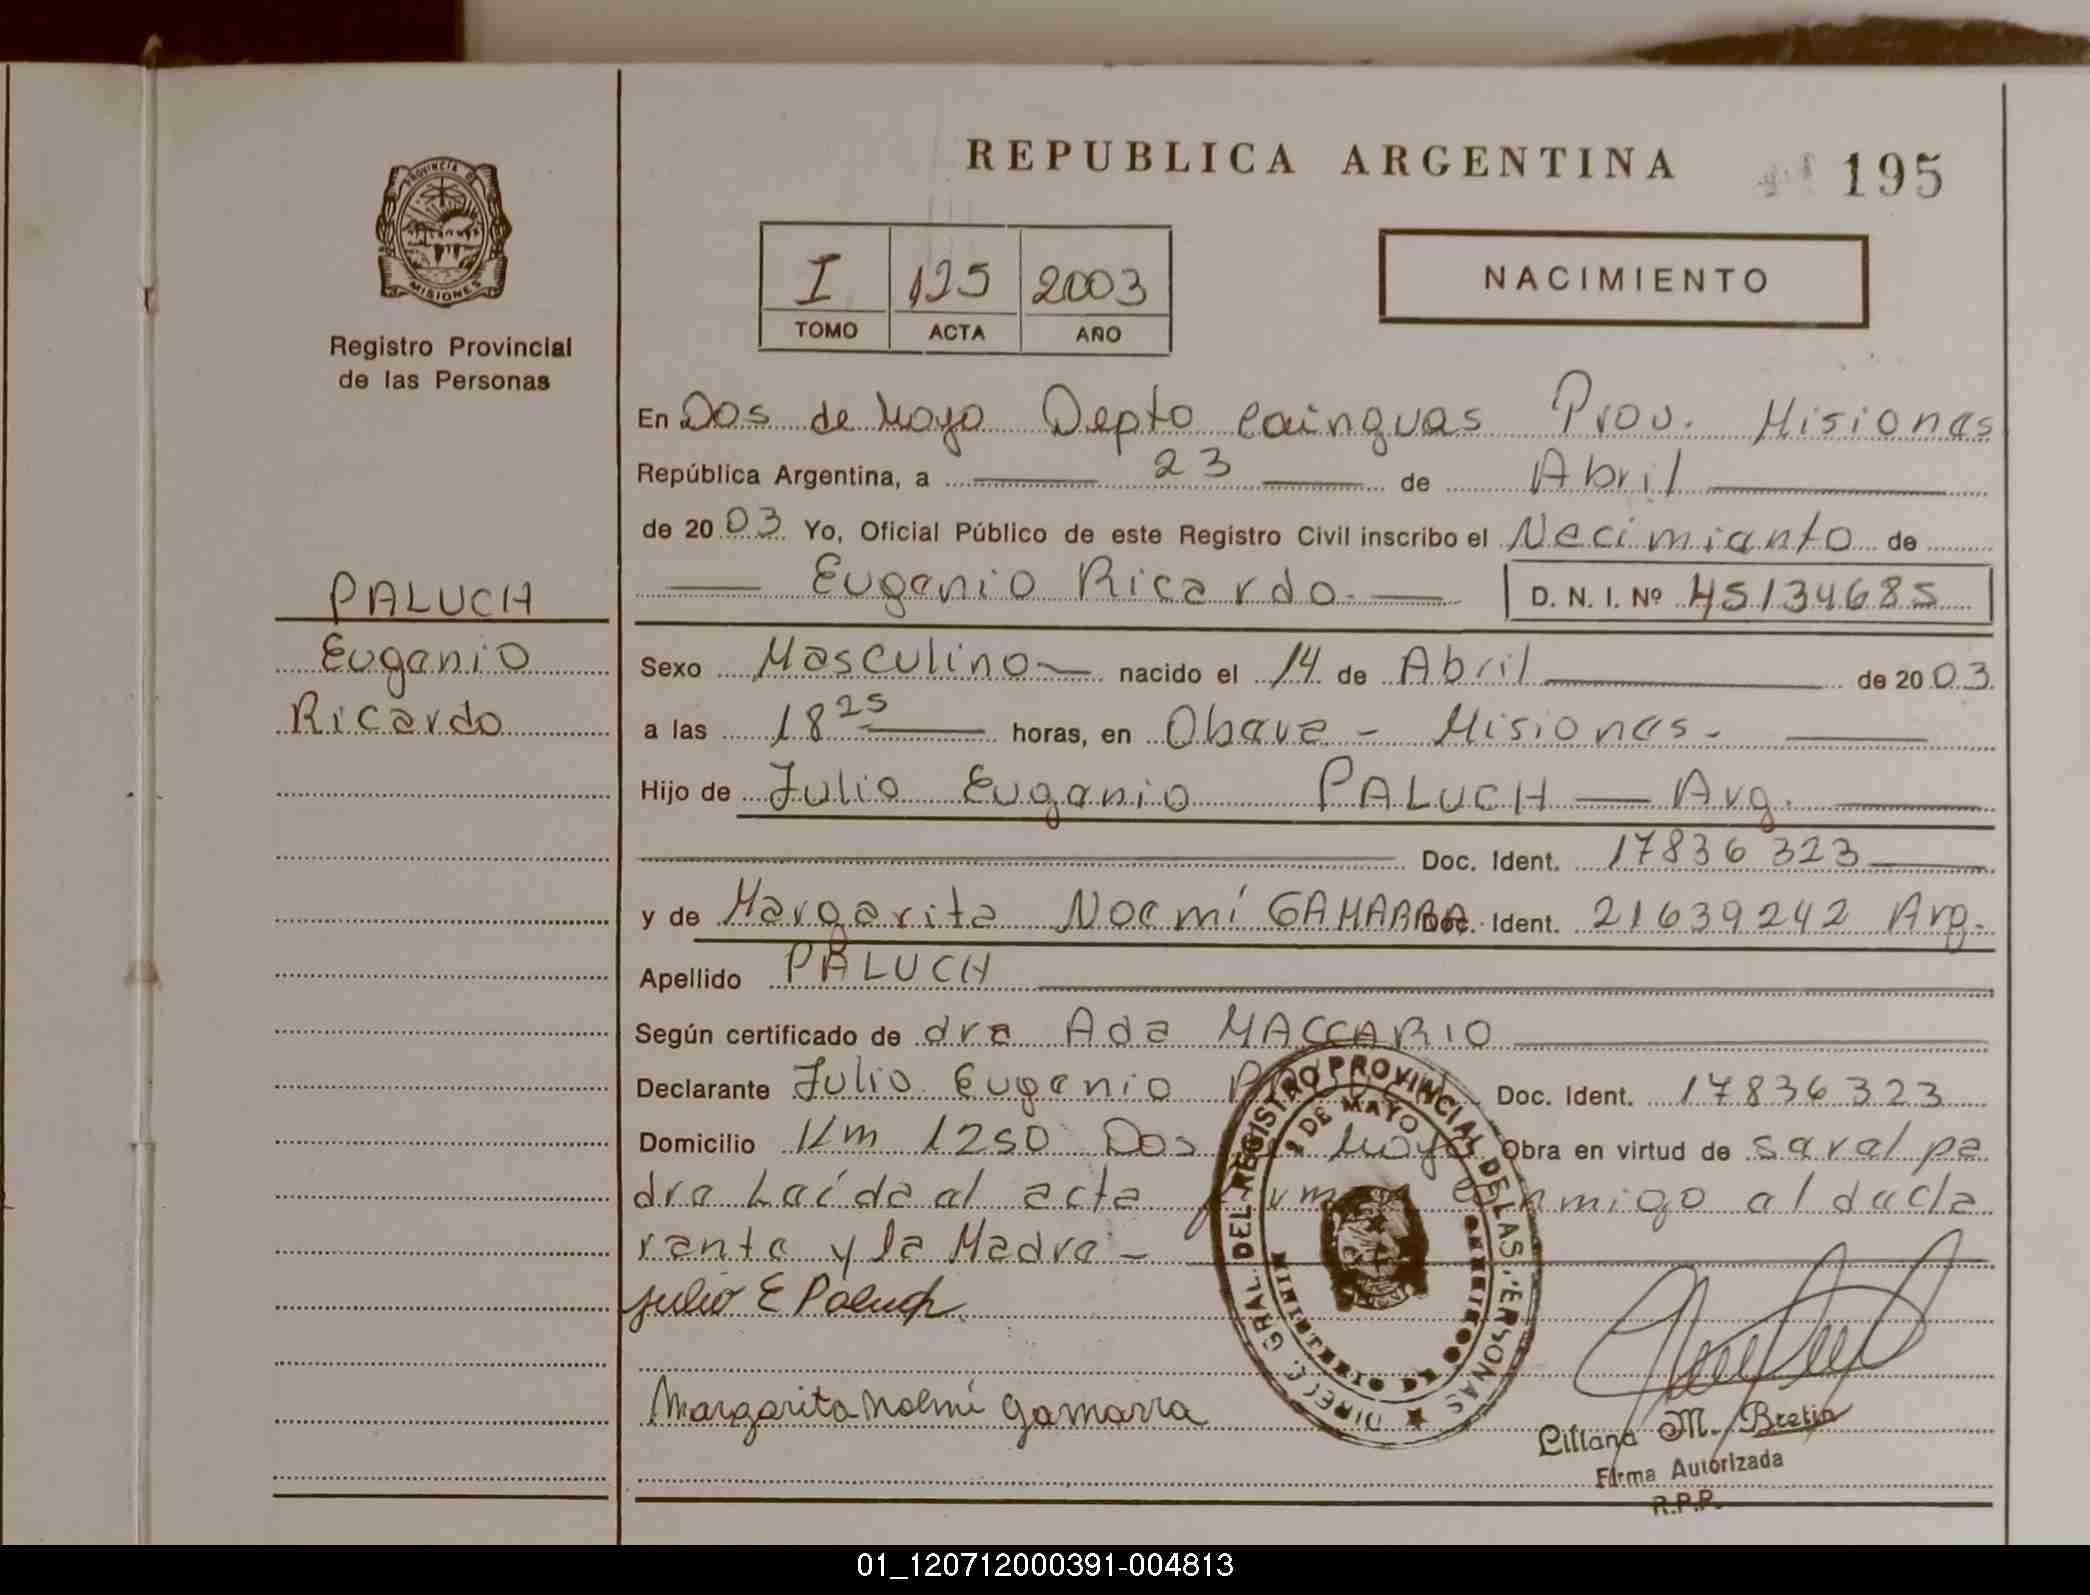 PROVINCIA DE
MISIONES
Registro Provincial
de las Personas
PALUCH
Eugenio
Ricardo
REPUBLICA ARGENTINA
195
I 195 2003
TOMO ACTA AÑO
NACIMIENTO
En Dos de Mayo Depto Cainguas Prov. Misiones
República Argentina, a 23 de Abril
de 2003 Yo, Oficial Público de este Registro Civil inscribo el Nacimiento de
Eugenio Ricardo. D. N. I. Nº 45134685
Sexo Masculino nacido el 14 de Abril de 2003
a las 18 25 horas, en Obera - Misiones.
Hijo de Julio Eugenio PALUCH Arg.
Doc. Ident. 17836323
y de Margarita Noemí GAMARRA Doc. Ident. 21639242 Arg.
Apellido PALUCH
Según certificado de dra Ada MACCARIO
Declarante Julio Eugenio Doc. Ident. 17836323
Domicilio Km 1250 Dos Mayo Obra en virtud de ser el pa
dre Leída el acta conmigo el decla
rante y la Madre.-
Julio E Paluch
Margarita Noemí Gamarra
DIREC. GRAL. DEL REGISTRO PROVINCIAL DE LAS PERSONAS
2 DE MAYO
Liliana M. Bretin
Firma Autorizada
R.P.P.
01_120712000391-004813